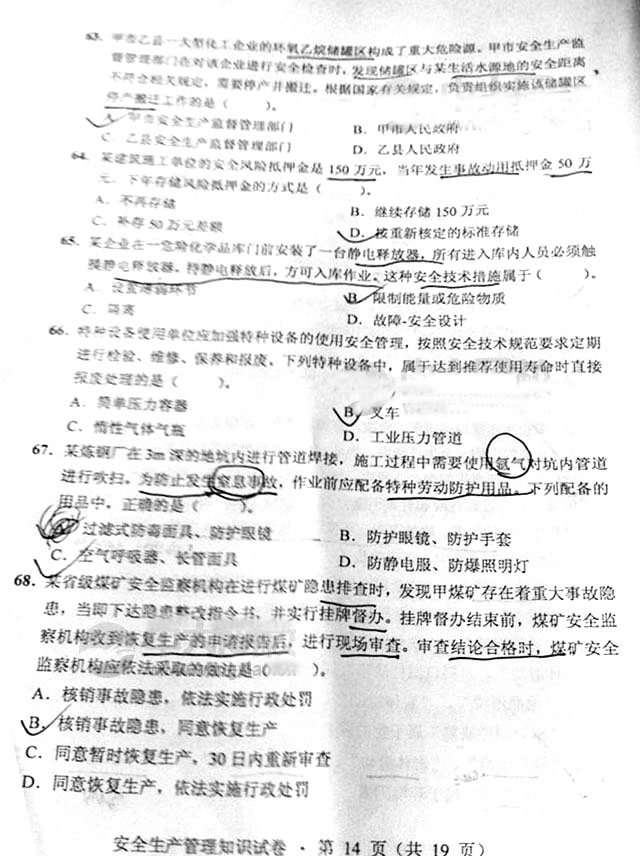 63. 甲市乙县一大型化工企业的环氧乙烷储罐区构成了重大危险源。甲市安全生产监
督管理部门在对该企业进行安全检查时，发现储罐区与某生活水源地的安全距离
不符合相关规定，需要停产并搬迁。根据国家有关规定，负责组织实施该储罐区
停产搬迁工作的是（ ）。
A. 甲市安全生产监督管理部门 B. 甲市人民政府
C. 乙县安全生产监督管理部门 D. 乙县人民政府
64. 某建筑施工单位的安全风险抵押金是 150 万元，当年发生事故动用抵押金 50 万
元。下年存储风险抵押金的方式是（ ）。
A. 不再存储 B. 继续存储 150 万元
C. 补存 50 万元差额 D. 按重新核定的标准存储
65. 某企业在一危险化学品库门前安装了一台静电释放器，所有进入库内人员必须触
摸静电释放器，待静电释放后，方可入库作业。这种安全技术措施属于（ ）。
A. 设置薄弱环节 B. 限制能量或危险物质
C. 隔离 D. 故障-安全设计
66. 特种设备使用单位应加强特种设备的使用安全管理，按照安全技术规范要求定期
进行检验、维修、保养和报废。下列特种设备中，属于达到推荐使用寿命时直接
报废处理的是（ ）。
A. 简单压力容器 B. 叉车
C. 惰性气体气瓶 D. 工业压力管道
67. 某炼钢厂在 3m 深的地坑内进行管道焊接，施工过程中需要使用氩气对坑内管道
进行吹扫。为防止发生窒息事故，作业前应配备特种劳动防护用品。下列配备的
用品中，正确的是（ ）。
A. 过滤式防毒面具、防护眼镜 B. 防护眼镜、防护手套
C. 空气呼吸器、长管面具 D. 防静电服、防爆照明灯
68. 某省级煤矿安全监察机构在进行煤矿隐患排查时，发现甲煤矿存在着重大事故隐
患，当即下达隐患整改指令书，并实行挂牌督办。挂牌督办结束前，煤矿安全监
察机构收到恢复生产的申请报告后，进行现场审查。审查结论合格时，煤矿安全
监察机构应依法采取的做法是（ ）。
A. 核销事故隐患，依法实施行政处罚
B. 核销事故隐患，同意恢复生产
C. 同意暂时恢复生产，30 日内重新审查
D. 同意恢复生产，依法实施行政处罚
安全生产管理知识试卷 · 第 14 页（共 19 页）